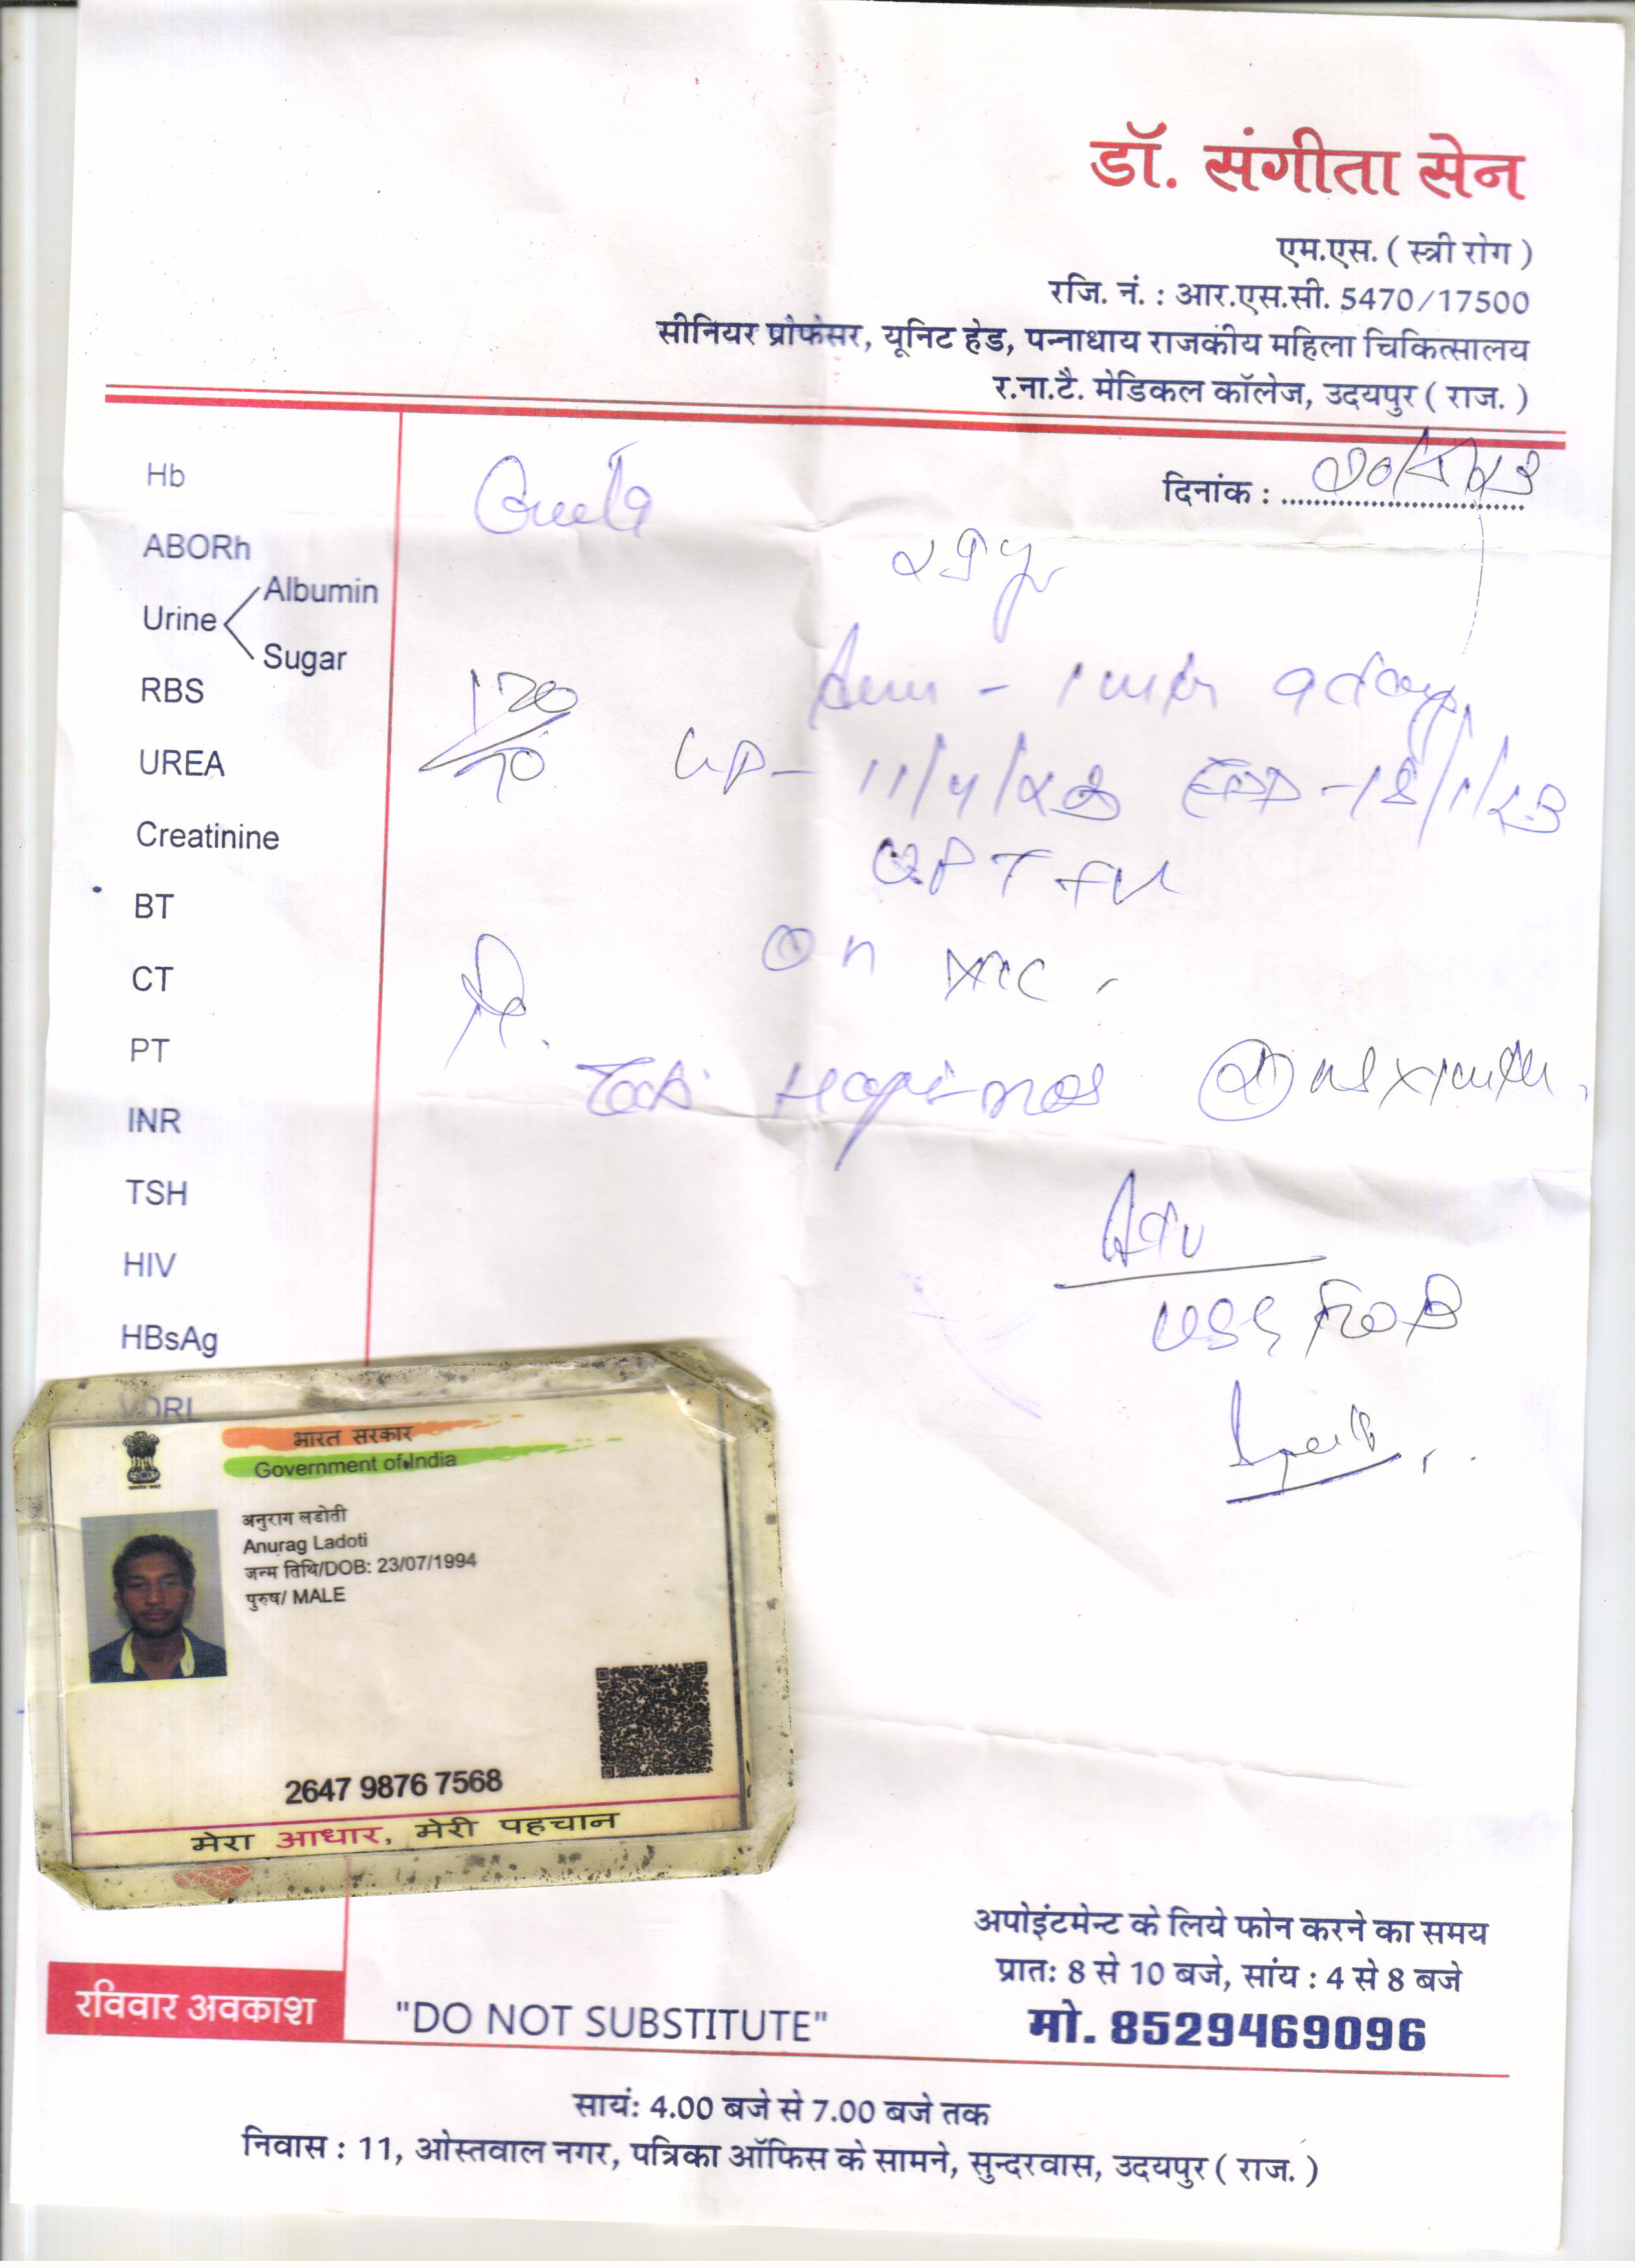 डॉ. संगीता सेन
एम.एस. ( स्त्री रोग )
रजि. नं. : आर.एस.सी. 5470/17500
सीनियर प्रोफेसर, यूनिट हेड, पन्नाधाय राजकीय महिला चिकित्सालय
र.ना.टै. मेडिकल कॉलेज, उदयपुर ( राज. )
दिनांक :
Hb
Geeta
ABORh
Urine
Albumin
Sugar
RBS
120/70
UREA
EDD - 18/1/23
Creatinine
UPT
BT
on
CT
PT
INR
TSH
Adv
HIV
HBsAg
VDRL
भारत सरकार
Government of India
अनुराग लडोती
Anurag Ladoti
जन्म तिथि/DOB: 23/07/1994
पुरुष/ MALE
2647 9876 7568
मेरा आधार, मेरी पहचान
अपोइंटमेन्ट के लिये फोन करने का समय
प्रातः 8 से 10 बजे, सांय : 4 से 8 बजे
रविवार अवकाश
"DO NOT SUBSTITUTE"
मो. 8529469096
सायं: 4.00 बजे से 7.00 बजे तक
निवास : 11, ओस्तवाल नगर, पत्रिका ऑफिस के सामने, सुन्दरवास, उदयपुर ( राज. )